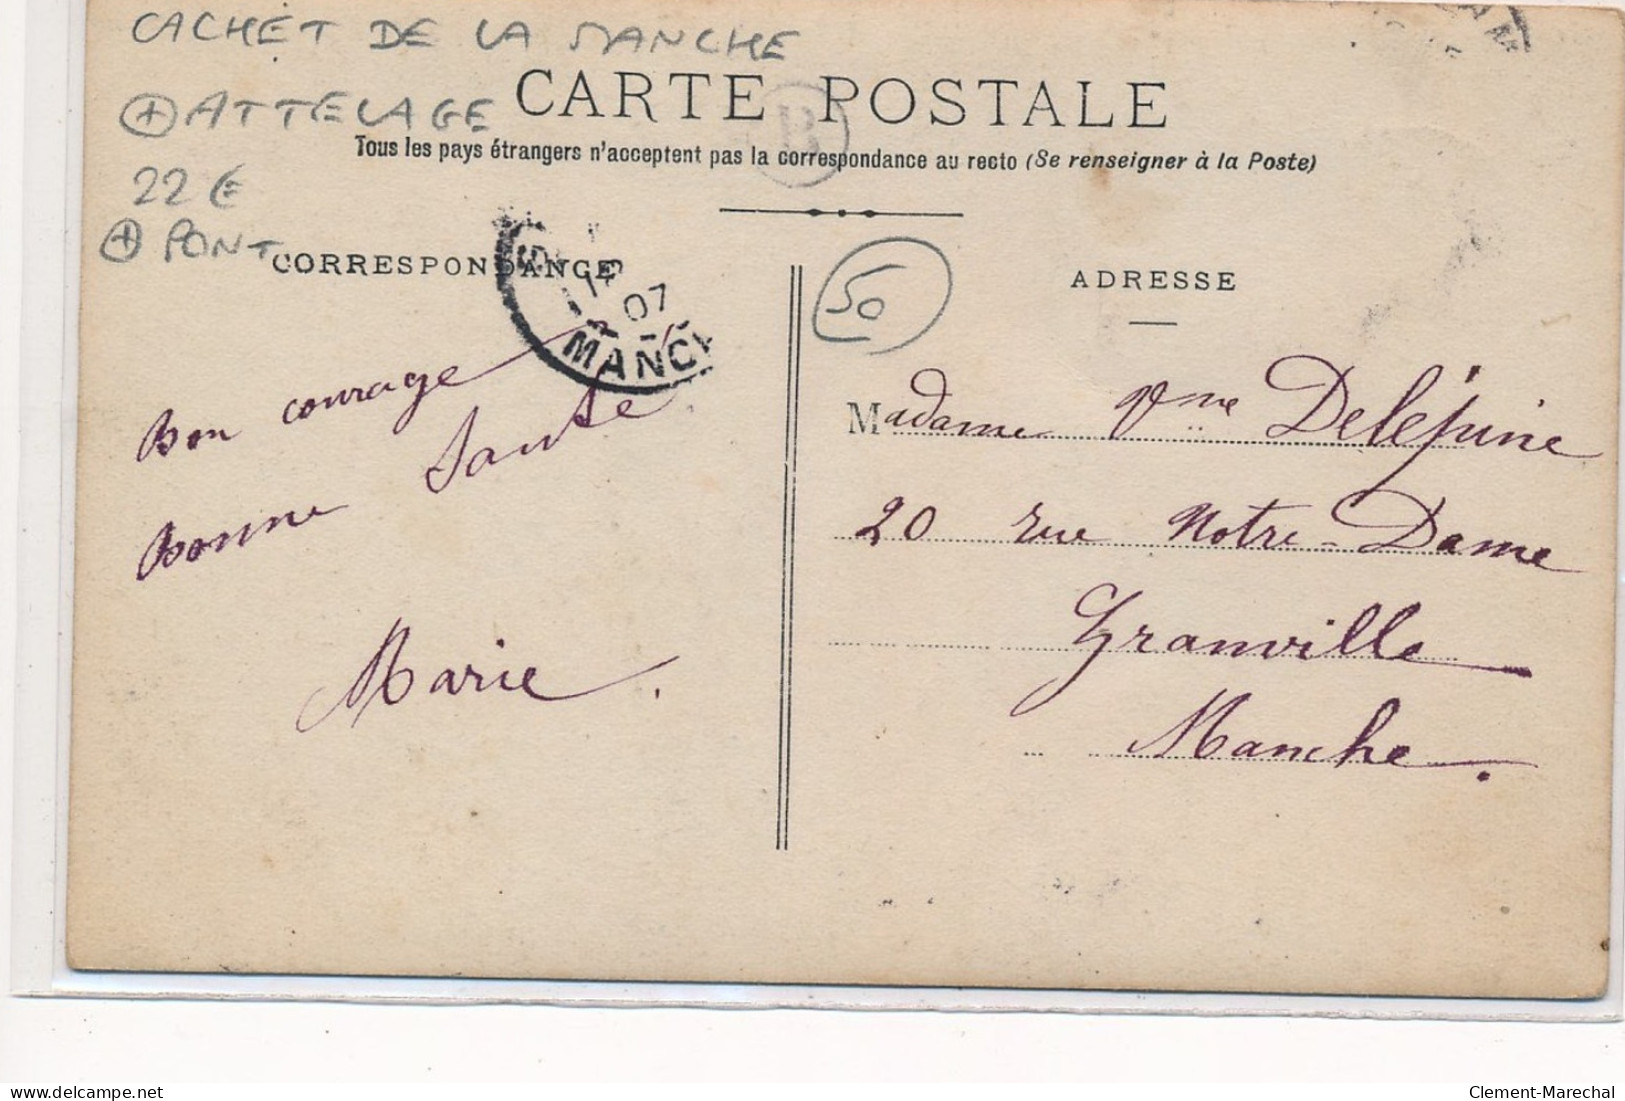 CACHET DE LA MANCHE
+ ATTELAGE
22 €
+ PONT
CARTE POSTALE
B
Tous les pays étrangers n'acceptent pas la correspondance au recto (Se renseigner à la Poste)
CORRESPONDANCE
07
MANCH
50
ADRESSE
Bon courage
Bonne Santé
Marie.
Madame Vve Delépine
20 rue Notre-Dame
Granville
Manche.
delcampe.net
Clement-Marechal